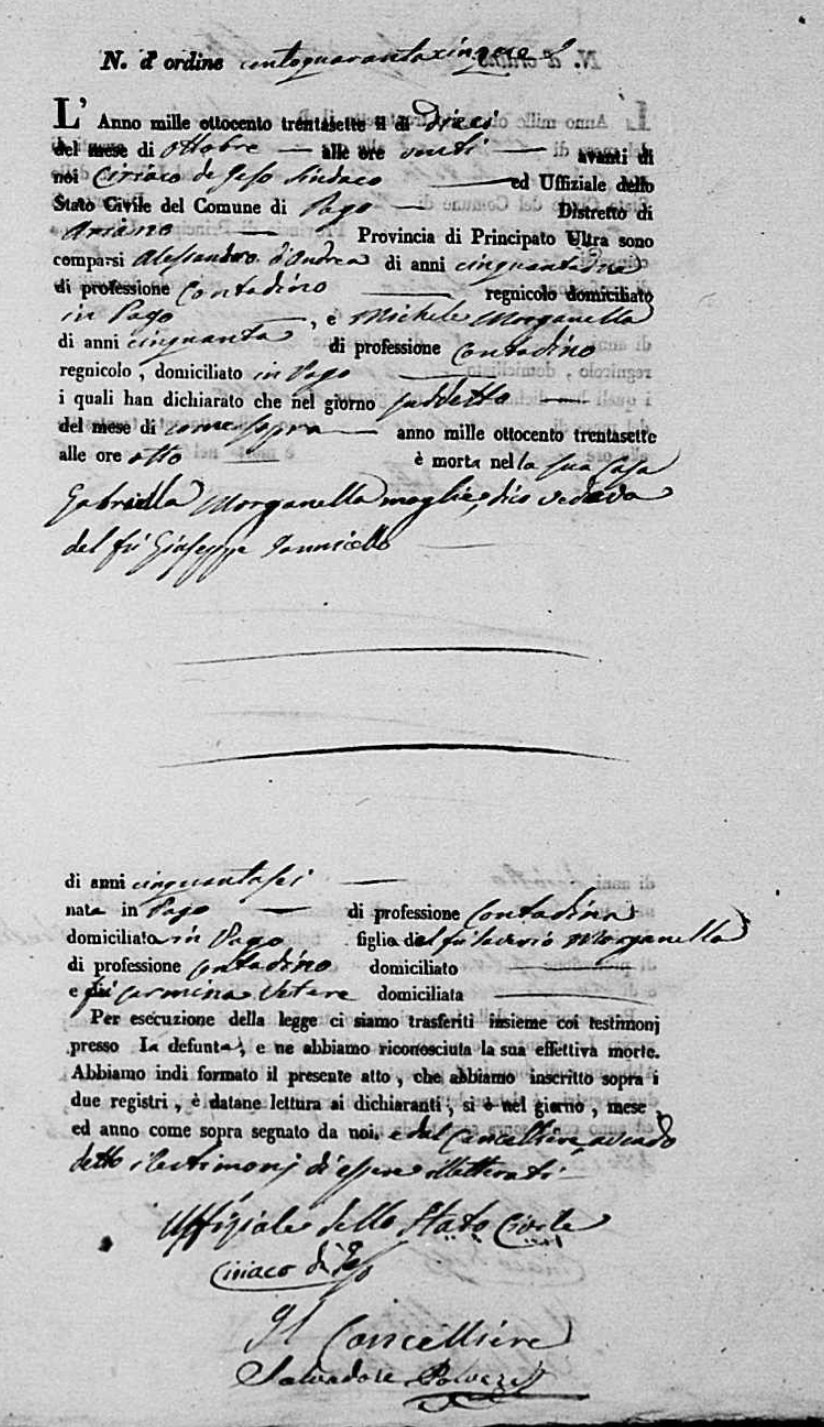 N. d' ordine centoquarantacinque
L' Anno mille ottocento trentasette il di dieci
del mese di ottobre — alle ore venti — avanti di
noi Ciriaco de Geso Sindaco — ed Uffiziale dello
Stato Civile del Comune di Pago — Distretto di
Ariano — Provincia di Principato Ultra sono
comparsi Alessandro d'Andrea di anni cinquantadue
di professione Contadino — regnicolo domiciliato
in Pago — , e Michele Morganella
di anni cinquanta di professione Contadino
regnicolo , domiciliato in Pago —
i quali han dichiarato che nel giorno suddetto —
del mese di come sopra — anno mille ottocento trentasette
alle ore otto — è morta nella sua casa
Gabriella Morganella moglie, dico vedova
del fù Giuseppe Iannicello —
di anni cinquantasei —
nata in Pago — di professione Contadina
domiciliata in Pago figlia del fù Morganella
di professione contadino domiciliato —
e fù Carmina Vetere domiciliata —
Per esecuzione della legge ci siamo trasferiti insieme coi testimonj
presso la defunta , e ne abbiamo riconosciuta la sua effettiva morte.
Abbiamo indi formato il presente atto , che abbiamo inscritto sopra i
due registri , è datane lettura ai dichiaranti , si è nel giorno , mese ,
ed anno come sopra segnato da noi. e dal Cancelliere, avendo
detto i testimonj di essere illetterati —
Uffiziale dello Stato Civile
Ciriaco de Geso
Il Cancelliere
Salvadore